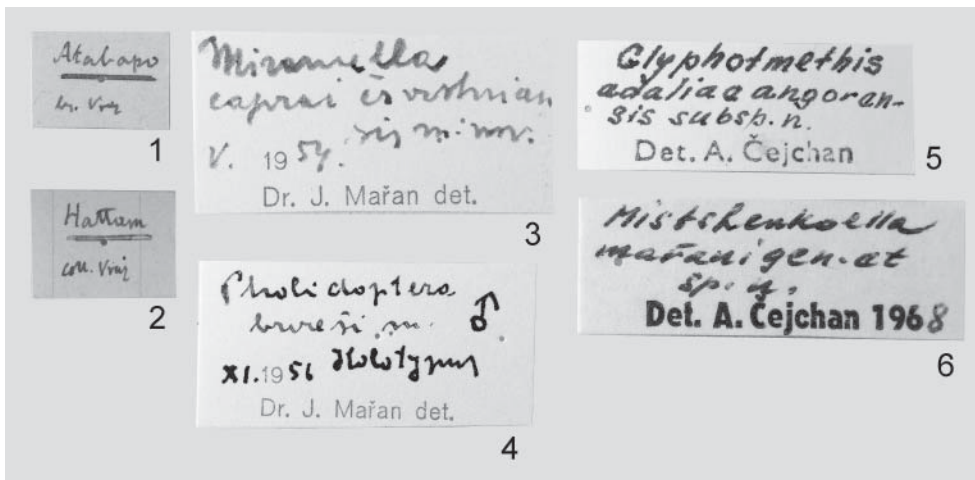 Atabapo
Vraz
1
Hattam
coll. Vraz
2
Miramella
caprai
sis m. nov.
V. 1954.
Dr. J. Mařan det.
3
Pholidoptera
bureši m. ♂
XI. 1956 Holotypus
Dr. J. Mařan det.
4
Glyphotmethis
adaliae angoren-
sis subsp. n.
Det. A. Čejchan
5
Mistshenkoella
mařani gen. et
sp. n.
Det. A. Čejchan 1968
6